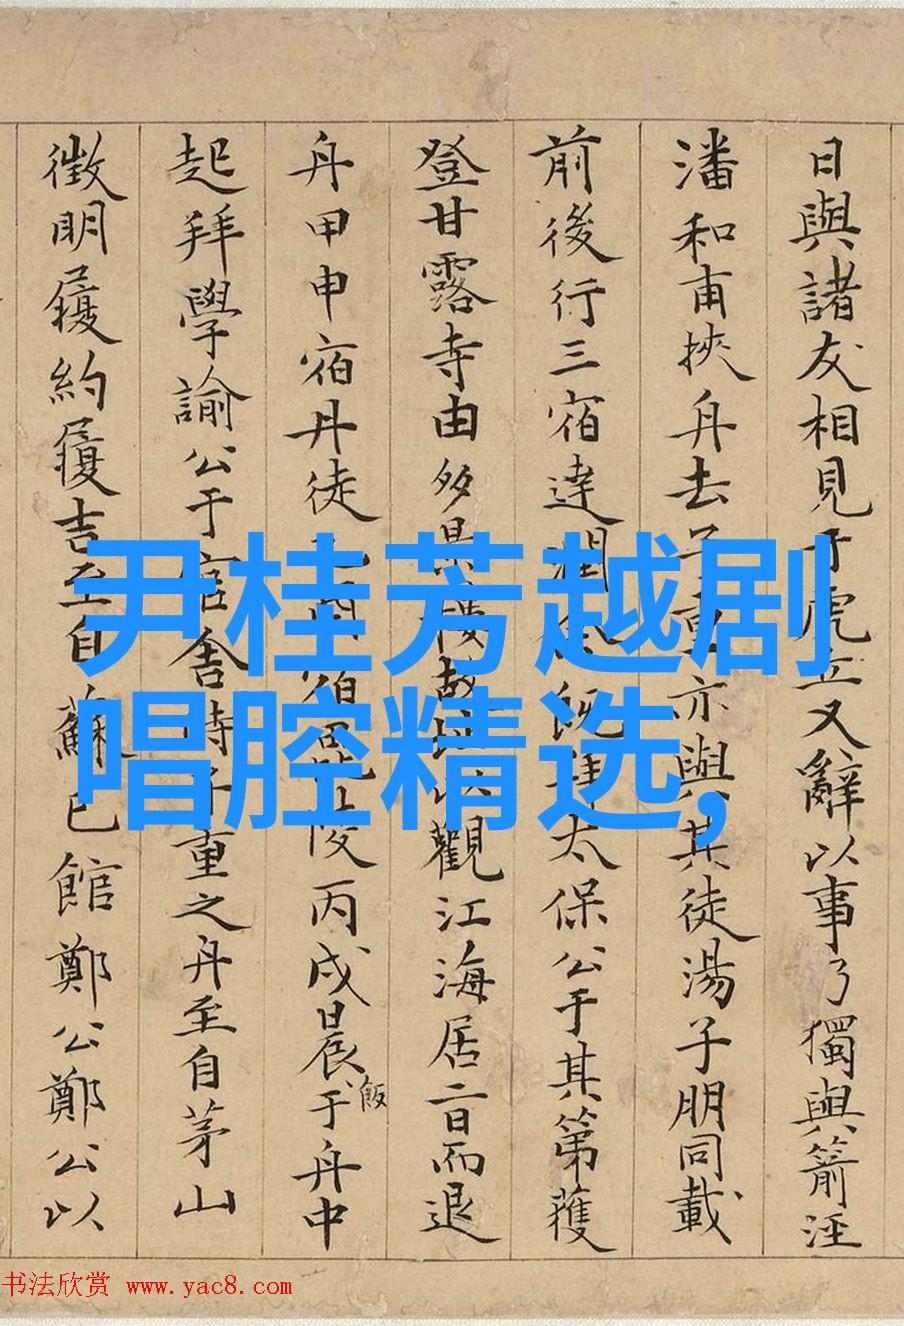 日與諸友相見子虎五又辭以事乃獨與箭涇
潘和甫挾舟去子重亦與其徒湯子朋同載
前後行三宿達潤 既 太保公于其第獲
登甘露寺由多景樓 以觀江海居二日而退
舟甲申宿丹徒 宿 陵丙戌晨飯于舟中
起拜學諭公于官舍時子重之舟至自茅山
徵明履約履吉至自蘇已館鄭公鄭公以
尹桂芳越剧
唱腔精选,
书法欣赏 www.yac8.com